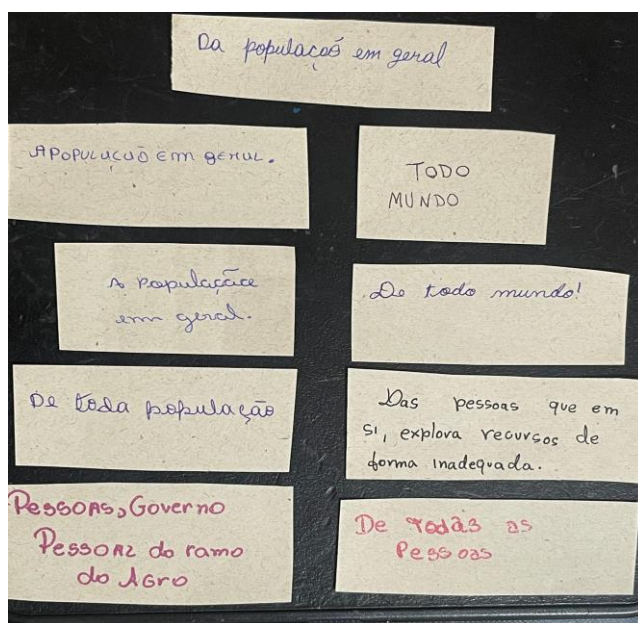 Da populaçaõ em geral
A POPULAÇÃO Em geral.
TODO
MUNDO
A Populaçãoe
em geral.
De todo mundo!
De toda população
Das pessoas que em
si, explora recursos de
forma inadequada.
Pessoas, Governo
Pessoaz do ramo
do Agro
De todas as
Pessoas